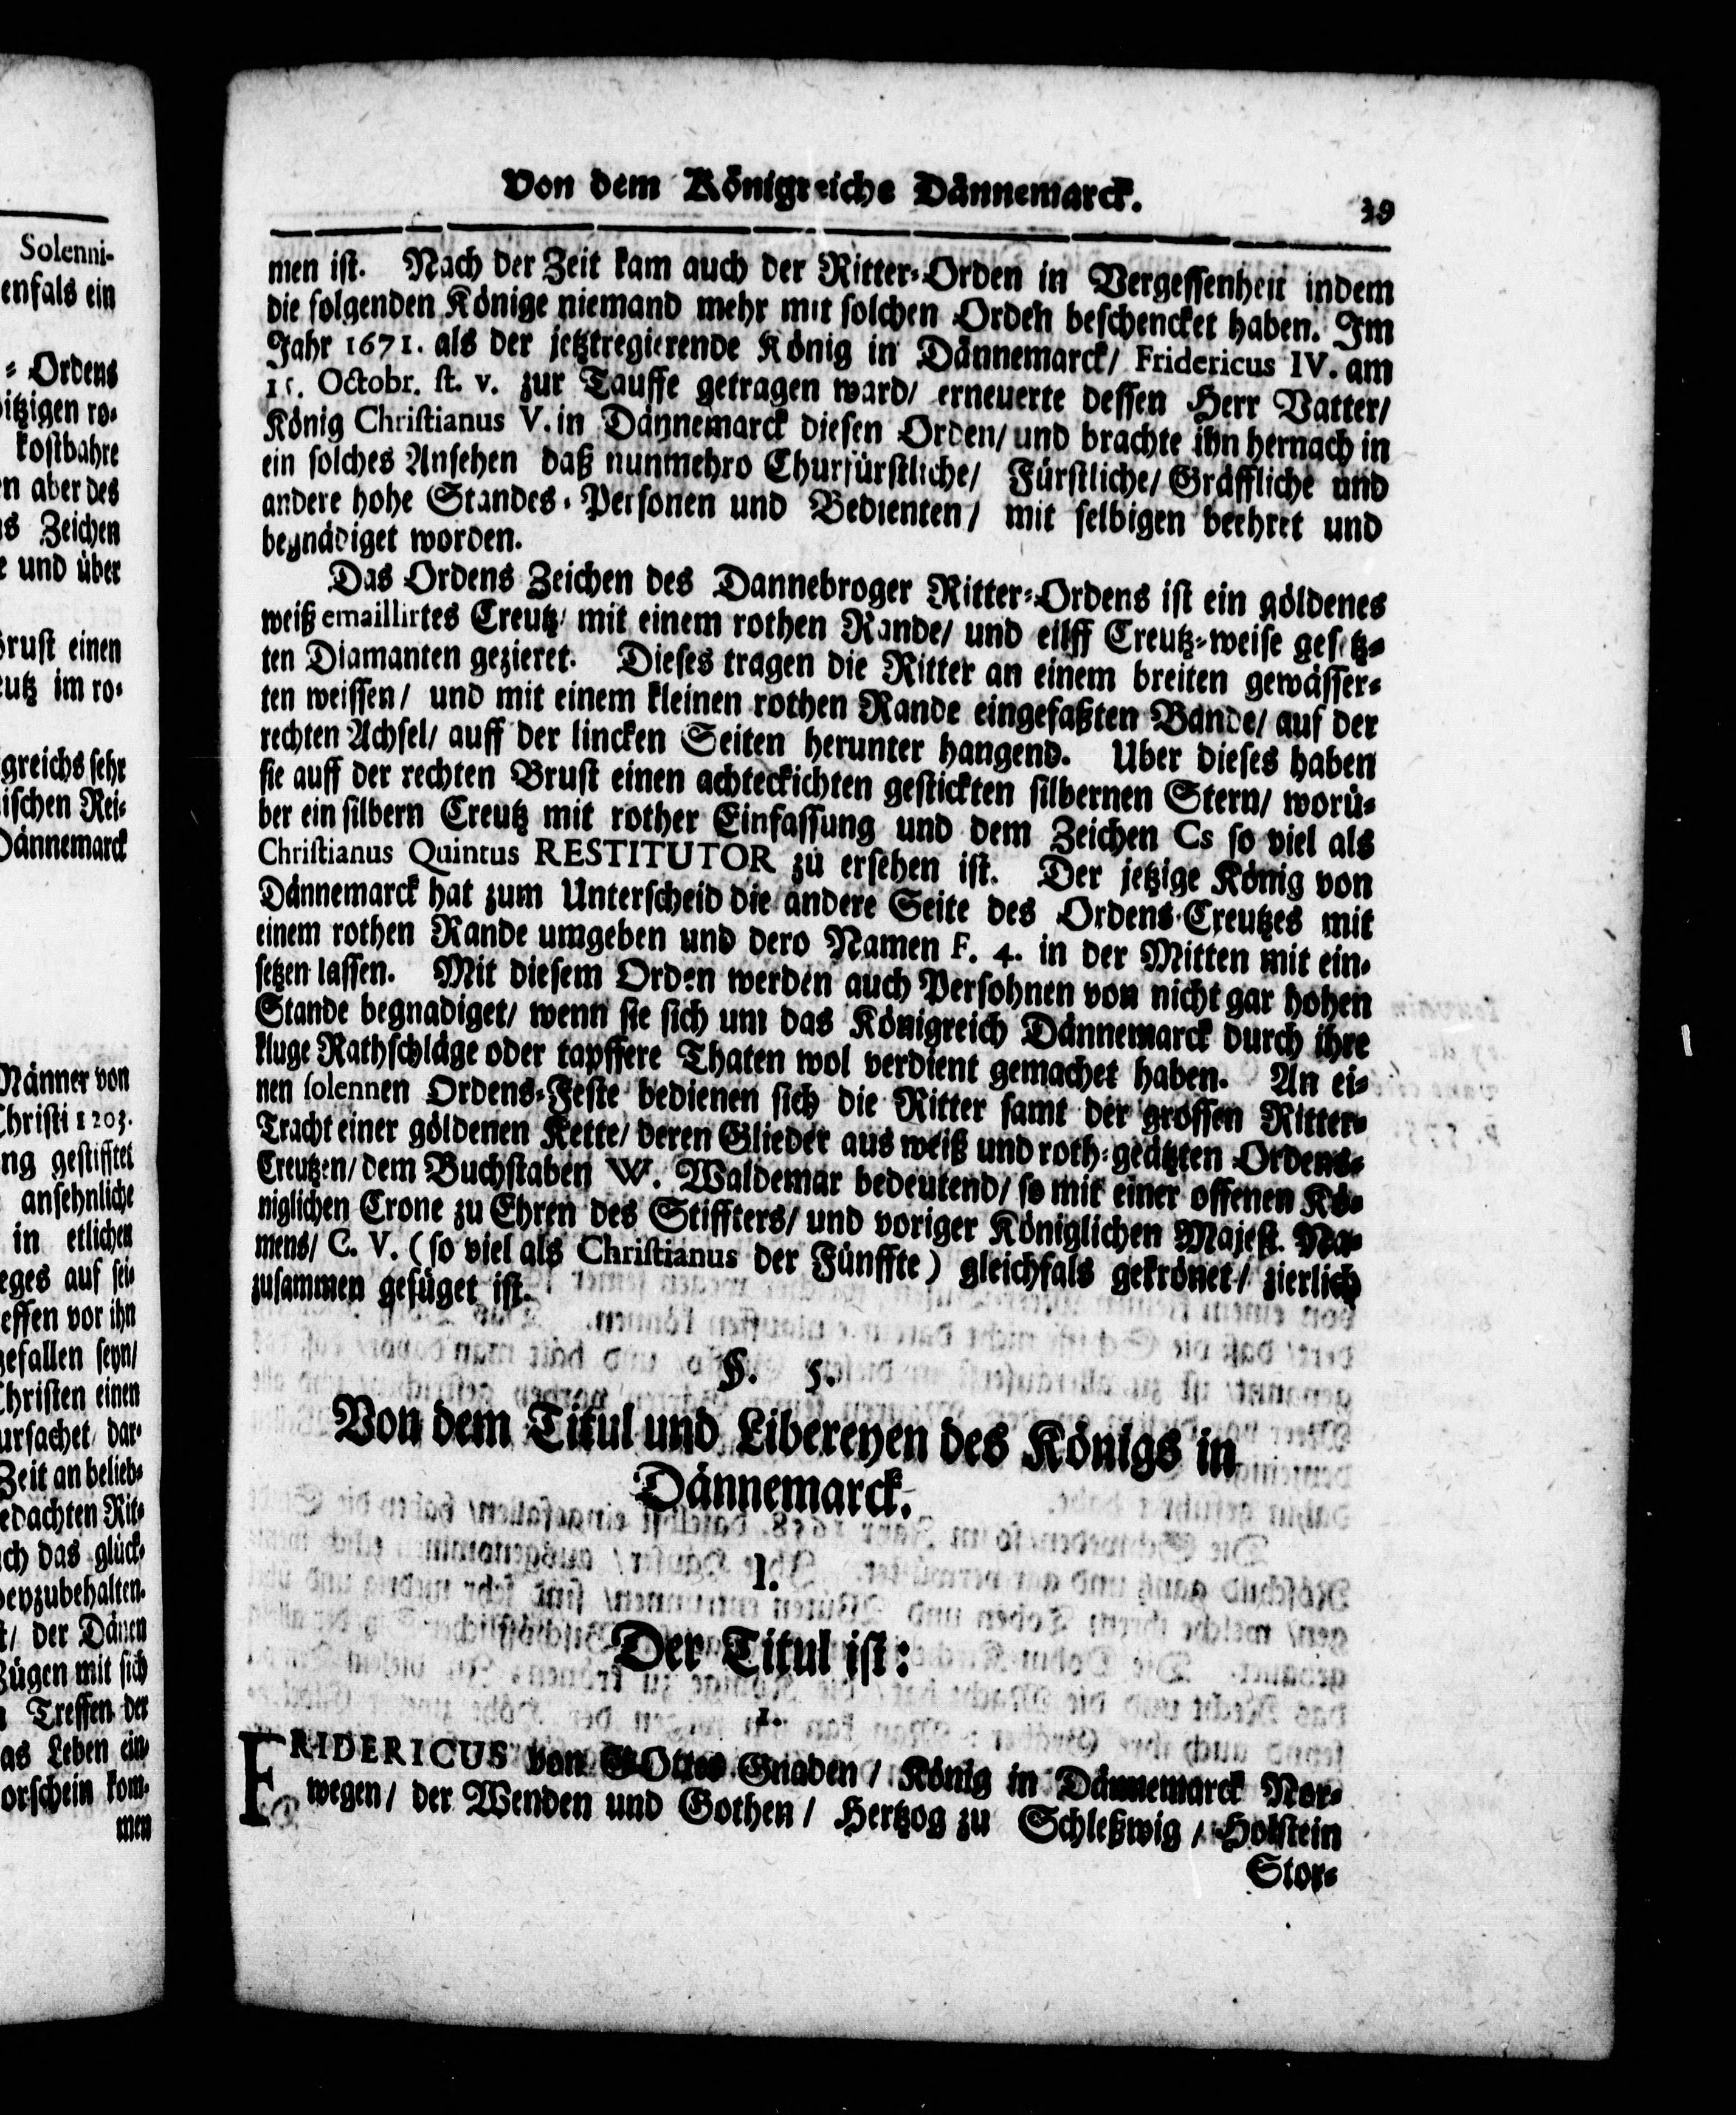 Solenni-
enfals ein
⸗ Ordens
itzigen ro⸗
kostbahre
n aber des
s Zeichen
e und über
rust einen
eutz im ro⸗
greichs sehr
ischen Rei⸗
Dännemarck
Männer von
Christi 1203.
ng gestifftet
ansehnliche
in etlichen
eges auf sei⸗
effen vor ihn
gefallen seyn/
Christen einen
ursachet/ dar⸗
Zeit an belieb⸗
edachten Rit⸗
ch das glück⸗
beyzubehalten.
t/ der Dänen
Zügen mit sich
Treffen der
as Leben ein⸗
orschein kom⸗
men
Von dem Königreiche Dännemarck. 39
men ist. Nach der Zeit kam auch der Ritter⸗Orden in Vergessenheit indem
die folgenden Könige niemand mehr mit solchen Orden beschencket haben. Im
Jahr 1671. als der jetztregierende König in Dännemarck/ Fridericus IV. am
15. Octobr. st. v. zur Tauffe getragen ward/ erneuerte dessen Herr Vatter/
König Christianus V. in Dännemarck diesen Orden/ und brachte ihn hernach in
ein solches Ansehen daß nunmehro Churfürstliche/ Fürstliche/ Gräffliche und
andere hohe Standes⸗Personen und Bedienten/ mit selbigen beehret und
begnädiget worden.
Das Ordens Zeichen des Dannebroger Ritter⸗Ordens ist ein göldenes
weiß emaillirtes Creutz/ mit einem rothen Rande/ und eilff Creutz⸗weise gesetz⸗
ten Diamanten gezieret. Dieses tragen die Ritter an einem breiten gewässer⸗
ten weissen/ und mit einem kleinen rothen Rande eingefaßten Bande/ auf der
rechten Achsel/ auff der lincken Seiten herunter hangend. Uber dieses haben
sie auff der rechten Brust einen achteckichten gestickten silbernen Stern/ worü⸗
ber ein silbern Creutz mit rother Einfassung und dem Zeichen Cs so viel als
Christianus Quintus RESTITUTOR zu ersehen ist. Der jetzige König von
Dännemarck hat zum Unterscheid die andere Seite des Ordens⸗Creutzes mit
einem rothen Rande umgeben und dero Namen F. 4. in der Mitten mit ein⸗
setzen lassen. Mit diesem Orden werden auch Persohnen von nicht gar hohen
Stande begnadiget/ wenn sie sich um das Königreich Dännemarck durch ihre
kluge Rathschläge oder tapffere Thaten wol verdient gemachet haben. An ei⸗
nen solennen Ordens⸗Feste bedienen sich die Ritter samt der grossen Ritter⸗
Tracht einer göldenen Kette/ deren Glieder aus weiß und roth⸗geätzten Ordens⸗
Creutzen/ dem Buchstaben W. Waldemar bedeutend/ so mit einer offenen Kö⸗
niglichen Crone zu Ehren des Stiffters/ und voriger Königlichen Majest. Na⸗
mens/ C. V. (so viel als Christianus der Fünffte) gleichfals gekrönet/ zierlich
zusammen gefüget ist.
§. 5.
Von dem Titul und Libereyen des Königs in
Dännemarck.
I.
Der Titul ist:
1.
FRIDERICUS von GOttes Gnaden/ König in Dännemarck Nor⸗
wegen/ der Wenden und Gothen/ Hertzog zu Schleßwig/ Holstein
Stor⸗